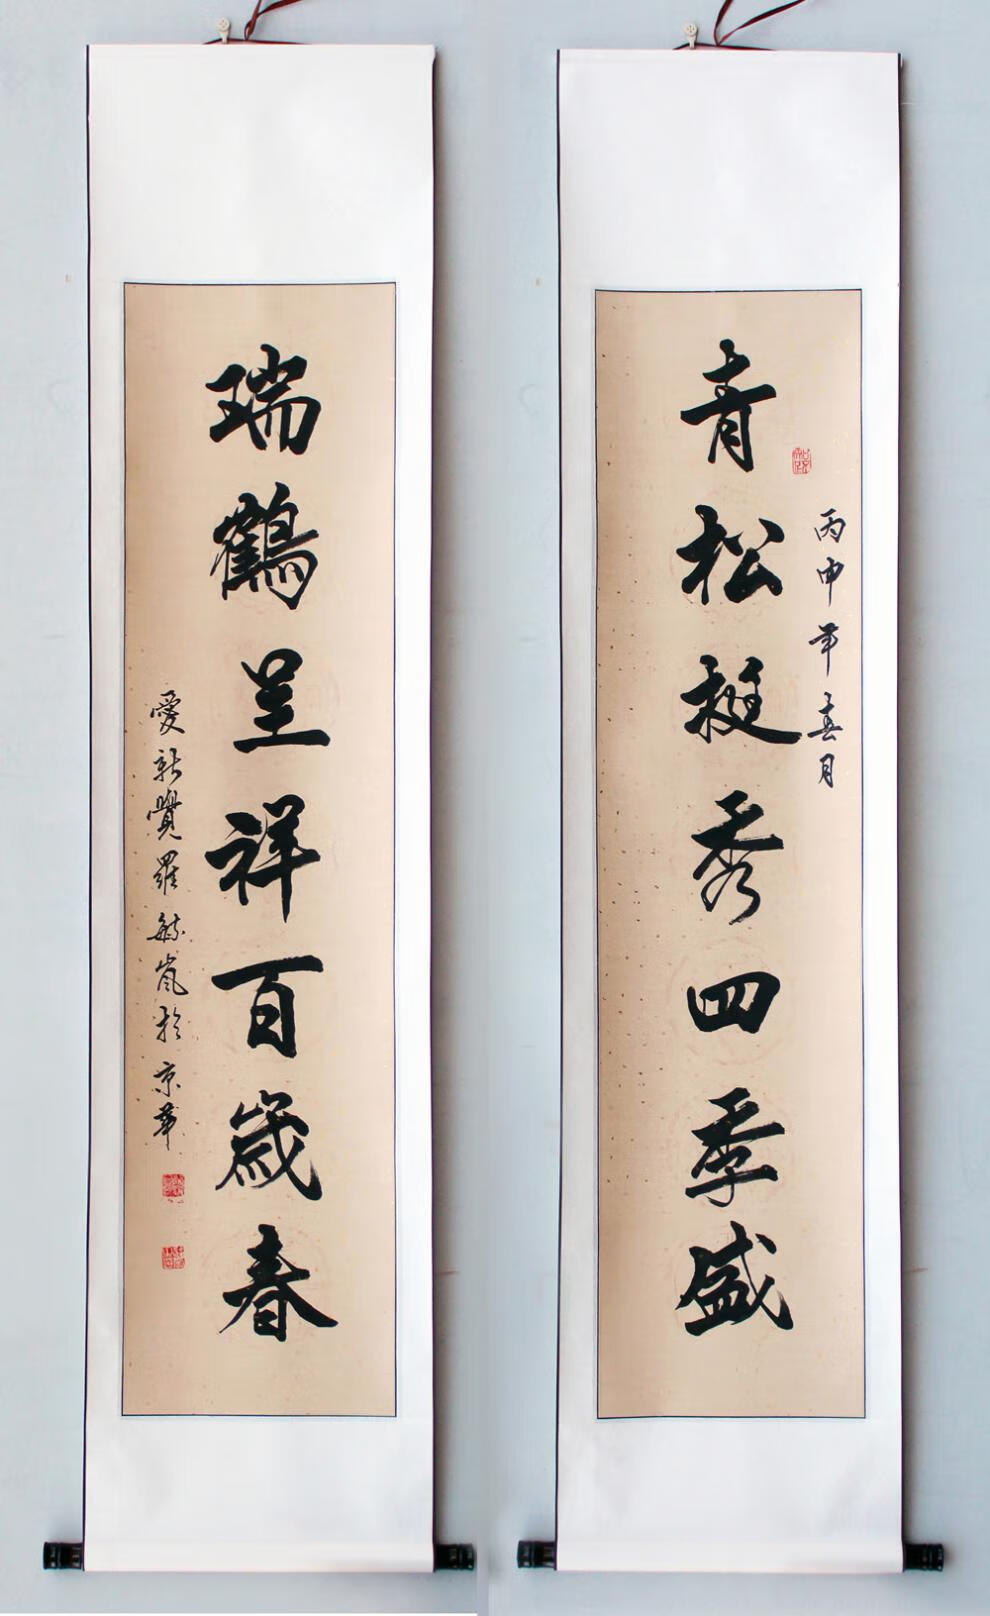 青松挺秀四季盛
丙申年春月
瑞鶴呈祥百歲春
愛新覺羅毓嵐於京華